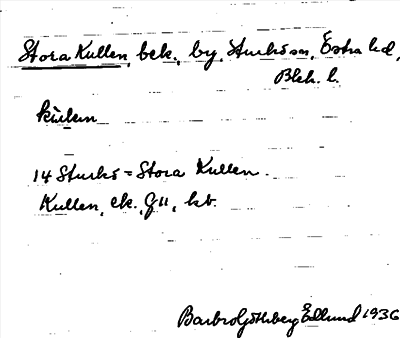 Stora Kullen, bek. by, Sturkö sn, Östra hd,
Blek. l.
kùlen
14 Sturkö = Stora Kullen.
Kullen, ek., G11, kb.
Barbro Götheberg Edlund 1936